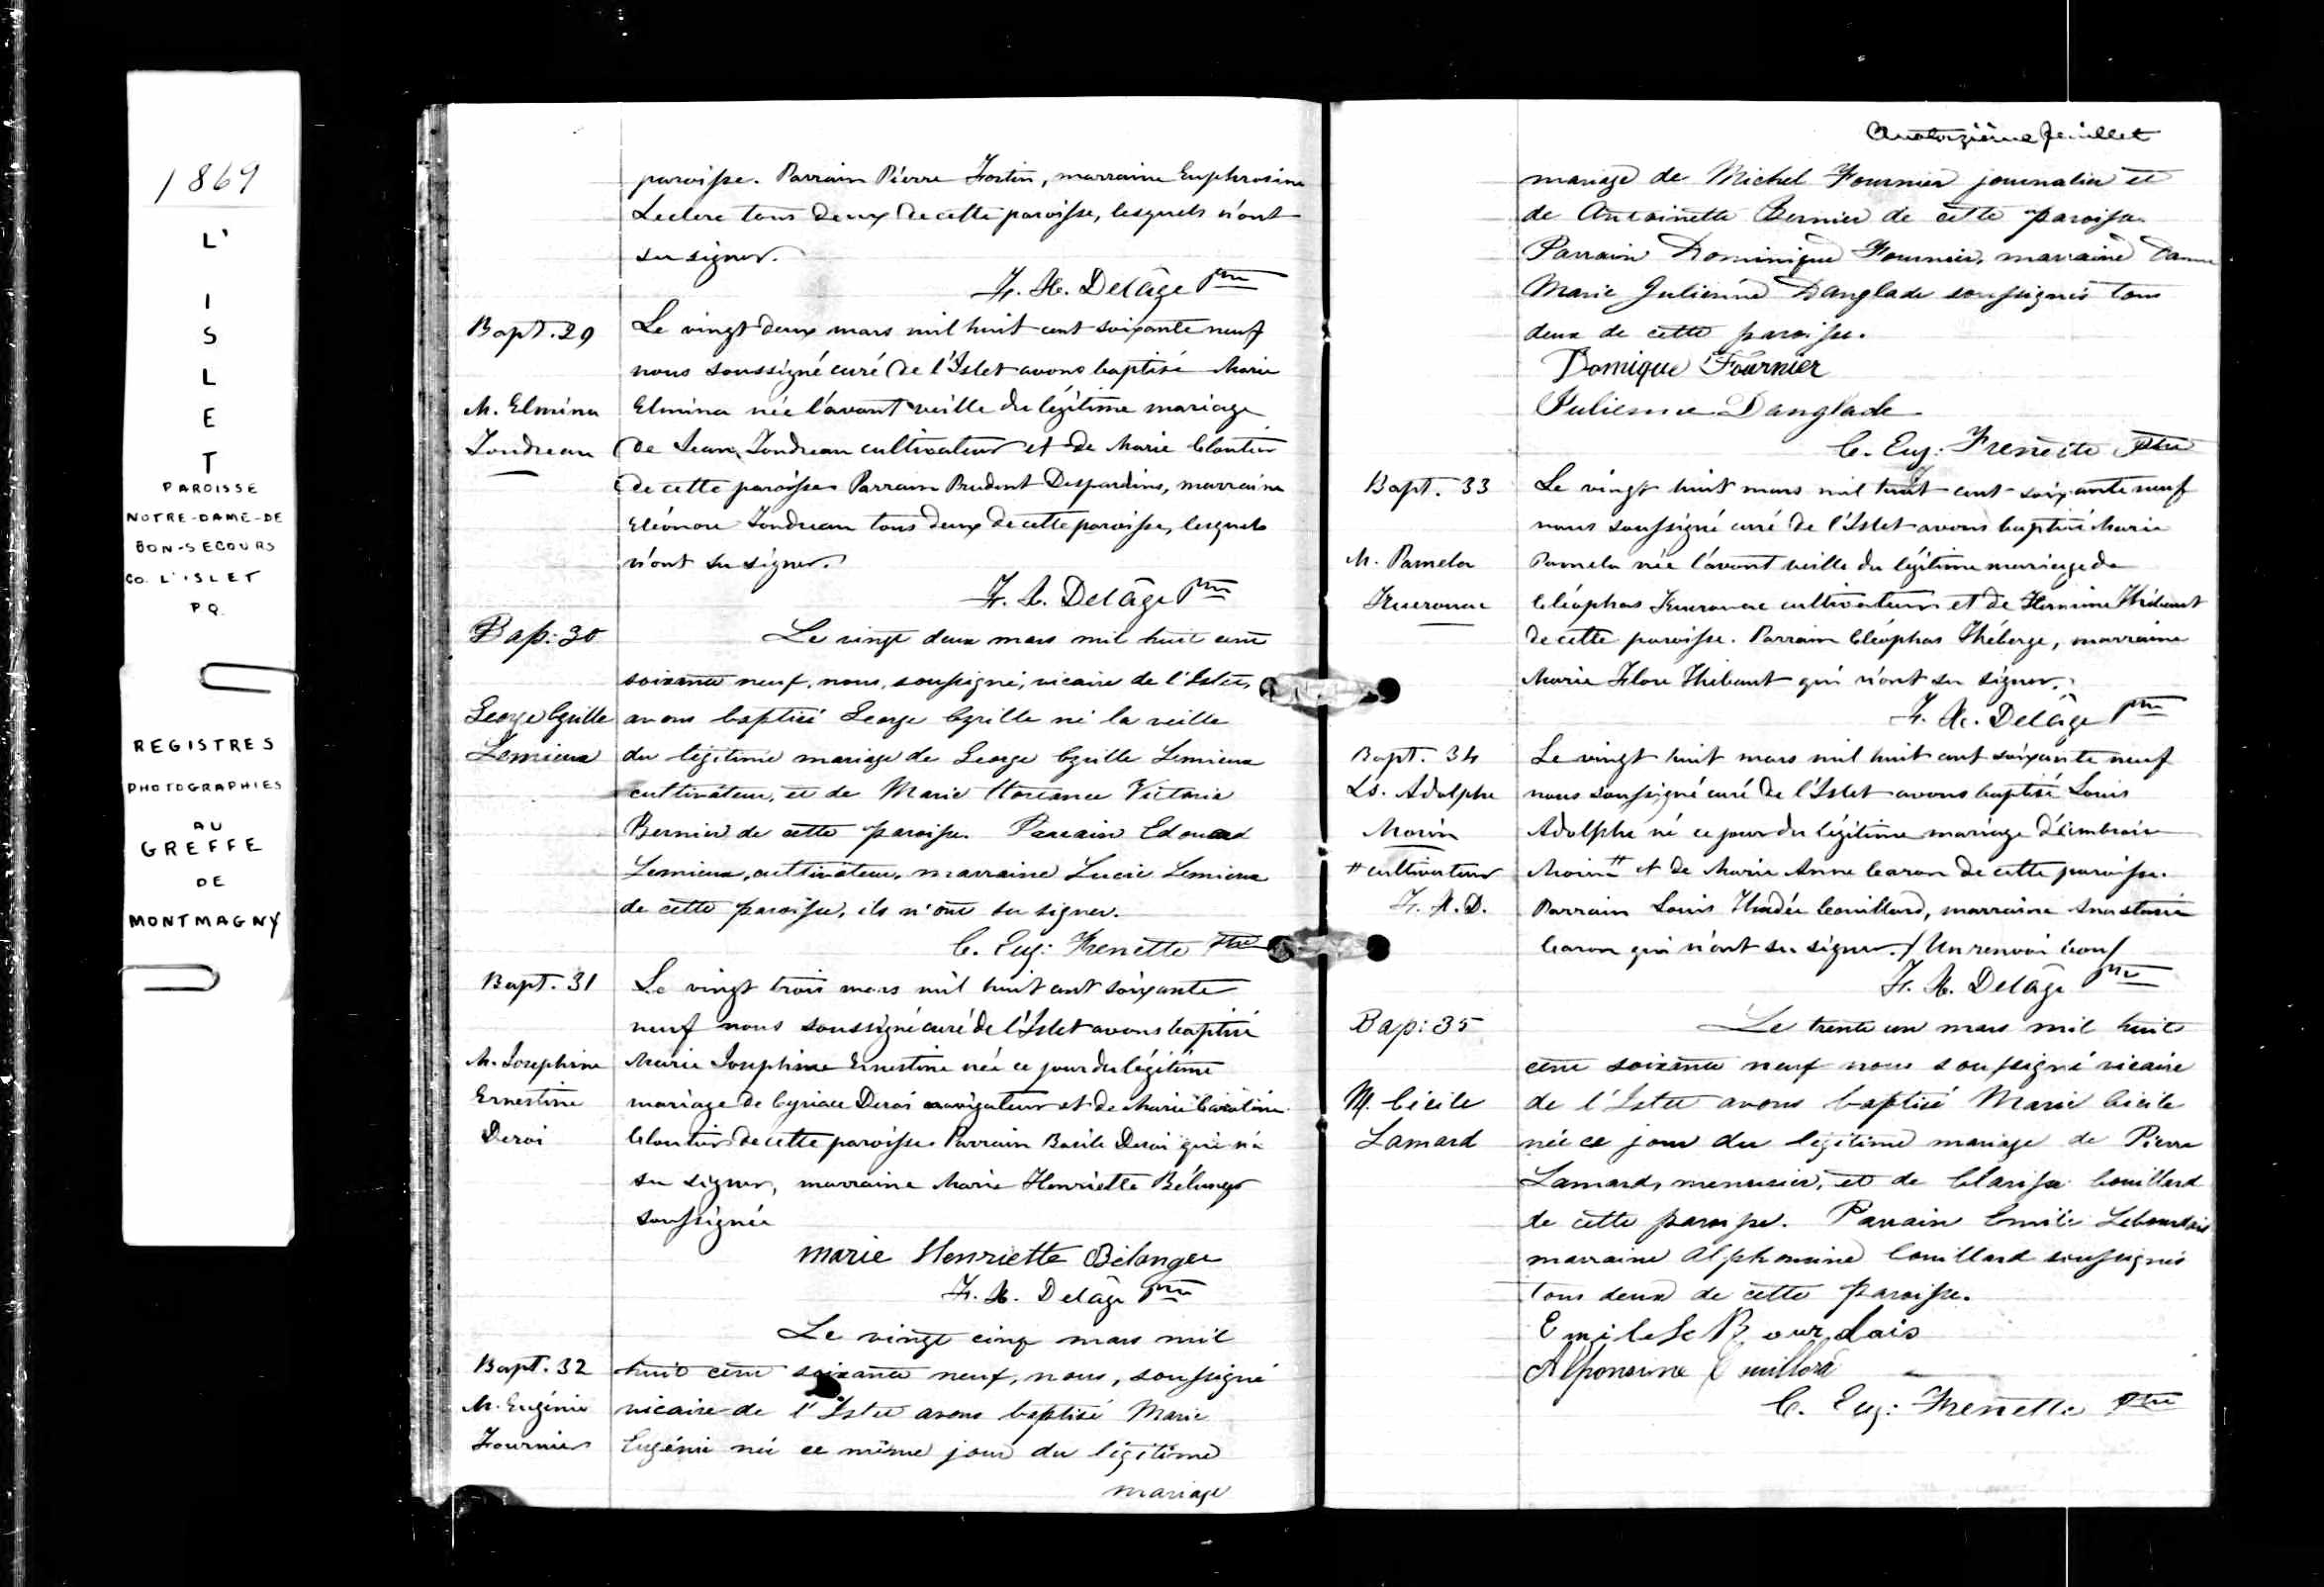 1869
L'
I
S
L
E
T
PAROISSE
NOTRE-DAME-DE
BON-SECOURS
CO. L'ISLET
P.Q.
REGISTRES
PHOTOGRAPHIES
AU
GREFFE
DE
MONTMAGNY
paroisse. Parrain Pierre Fortin, marraine Euphrosine
Leclerc tous deux de cette paroisse, lesquels n'ont
su signer.
F. X. Delâge Ptre
Bapt. 29
M. Elmina
Tondreau
Le vingt deux mars mil huit cent soixante neuf
nous soussigné curé de l'Islet avons baptisé Marie
Elmina née l'avant veille du légitime mariage
de Jean Tondreau cultivateur et de Marie Cloutier
de cette paroisse Parrain Prudent Desjardins, marraine
Eléonore Tondreau tous deux de cette paroisse, lesquels
n'ont su signer.
F. X. Delâge Ptre
Bap: 30
George Cyrille
Lemieux
Le vingt deux mars mil huit cent
soixante neuf, nous, soussigné, vicaire de l'Islet,
avons baptisé George Cyrille né la veille
du légitime mariage de George Cyrille Lemieux
cultivateur, et de Marie Victoria
Bernier de cette paroisse. Parrain Edouard
Lemieux, cultivateur, marraine Lucie Lemieux
de cette paroisse, ils n'ont su signer.
C. Eug: Frenette Ptre
Bapt. 31
M. Josephine
Ernestine
Deroi
Le vingt trois mars mil huit cent soixante
neuf nous soussigné curé de l'Islet avons baptisé
Marie Josephine Ernestine née ce jour du légitime
mariage de Cyriac Deroi navigateur et de Marie
Cloutier de cette paroisse Parrain Basile Deroi qui n'a
su signer, marraine Marie Henriette Bélanger
soussignée
Marie Henriette Bélanger
F. X. Delâge Ptre
Bapt. 32
M. Eugénie
Fournier
Le vingt cinq mars mil
huit cent soixante neuf, nous, soussigné
vicaire de l'Islet avons baptisé Marie
Eugénie née ce même jour du légitime
mariage
Quatorzième feuillet
mariage de Michel Fournier journalier et
de Antoinette Bernier de cette paroisse
Parrain Dominique Fournier, marraine Dame
Marie Julienne Danglade soussignés tous
deux de cette paroisse.
Domique Fournier
Julienne Danglade
C. Eug: Frenette Ptre
Bapt. 33
M. Pamela
Kuerouac
Le vingt huit mars mil huit cent soixante neuf
nous soussigné curé de l'Islet avons baptisé Marie
Pamela née l'avant veille du légitime mariage de
Cléophas Kuerouac cultivateur et de Hermine Thibault
de cette paroisse. Parrain Cléophas Théberge, marraine
Marie Flore Thibault qui n'ont su signer.
F. X. Delâge Ptre
Bapt. 34
Ls. Adolphe
Morin
# cultivateur
F. X. D.
Le vingt huit mars mil huit cent soixante neuf
nous soussigné curé de l'Islet avons baptisé Louis
Adolphe né ce jour du légitime mariage d'Ambroise
Morin # et de Marie Anne Caron de cette paroisse.
Parrain Louis Thadée Couillard, marraine Anastasie
Caron qui n'ont su signer. / Un renvoi bon /
F. X. Delâge Ptre
Bap: 35
M. Cécile
Lamard
Le trente un mars mil huit
cent soixante neuf nous soussigné vicaire
de l'Islet avons baptisé Marie Cécile
née ce jour du légitime mariage de Pierre
Lamard, menuisier, et de Clarisse Couillard
de cette paroisse. Parrain Emile Lebourdais
marraine Alphonsine Couillard soussignés
tous deux de cette paroisse.
Emile Le Bourdais
Alponsine Couillard
C. Eug: Frenette Ptre